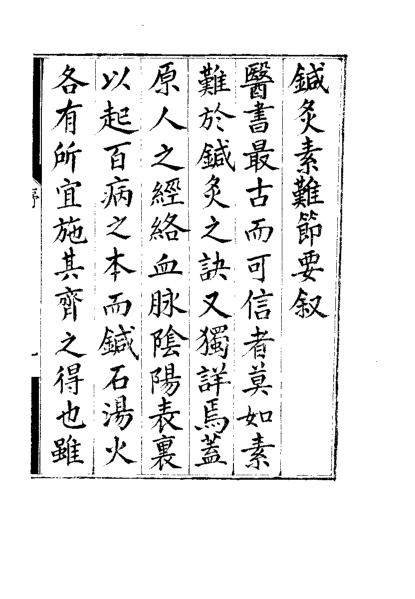 鍼灸素難節要叙
醫書最古而可信者莫如素
難於鍼灸之訣又獨詳焉蓋
原人之經絡血脉陰陽表裏
以起百病之本而鍼石湯火
各有所宜施其齊之得也雖
序
一